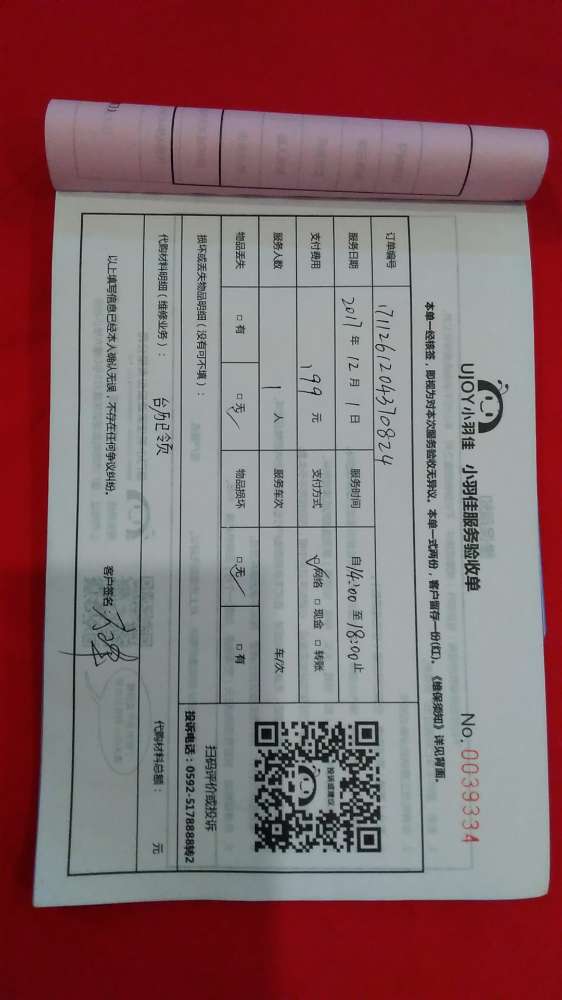 UJOY小羽佳 小羽佳服务验收单 No. 0039334
本单一经接签，即视为对本次服务验收无异议。本单一式两份，客户留存一份(红)。《维保须知》详见背面。
订单编号 171126120437 0824
服务日期 2017年 12月 1日 服务时间 自14:00至18:00止
支付费用 199元 支付方式 ☑网络 □现金 □转账
服务人数 1人 服务车次 车/次
物品丢失 □有 □无✓ 物品损坏 □无✓ □有
投诉或建议
扫码评价或投诉
投诉电话：0592-5178888转2
损坏或丢失物品明细（没有可不填）：
代购材料明细（维修业务）： 代购材料总额： 元
以上填写信息已经本人确认无误，不存在任何争议纠纷。 客户签名：